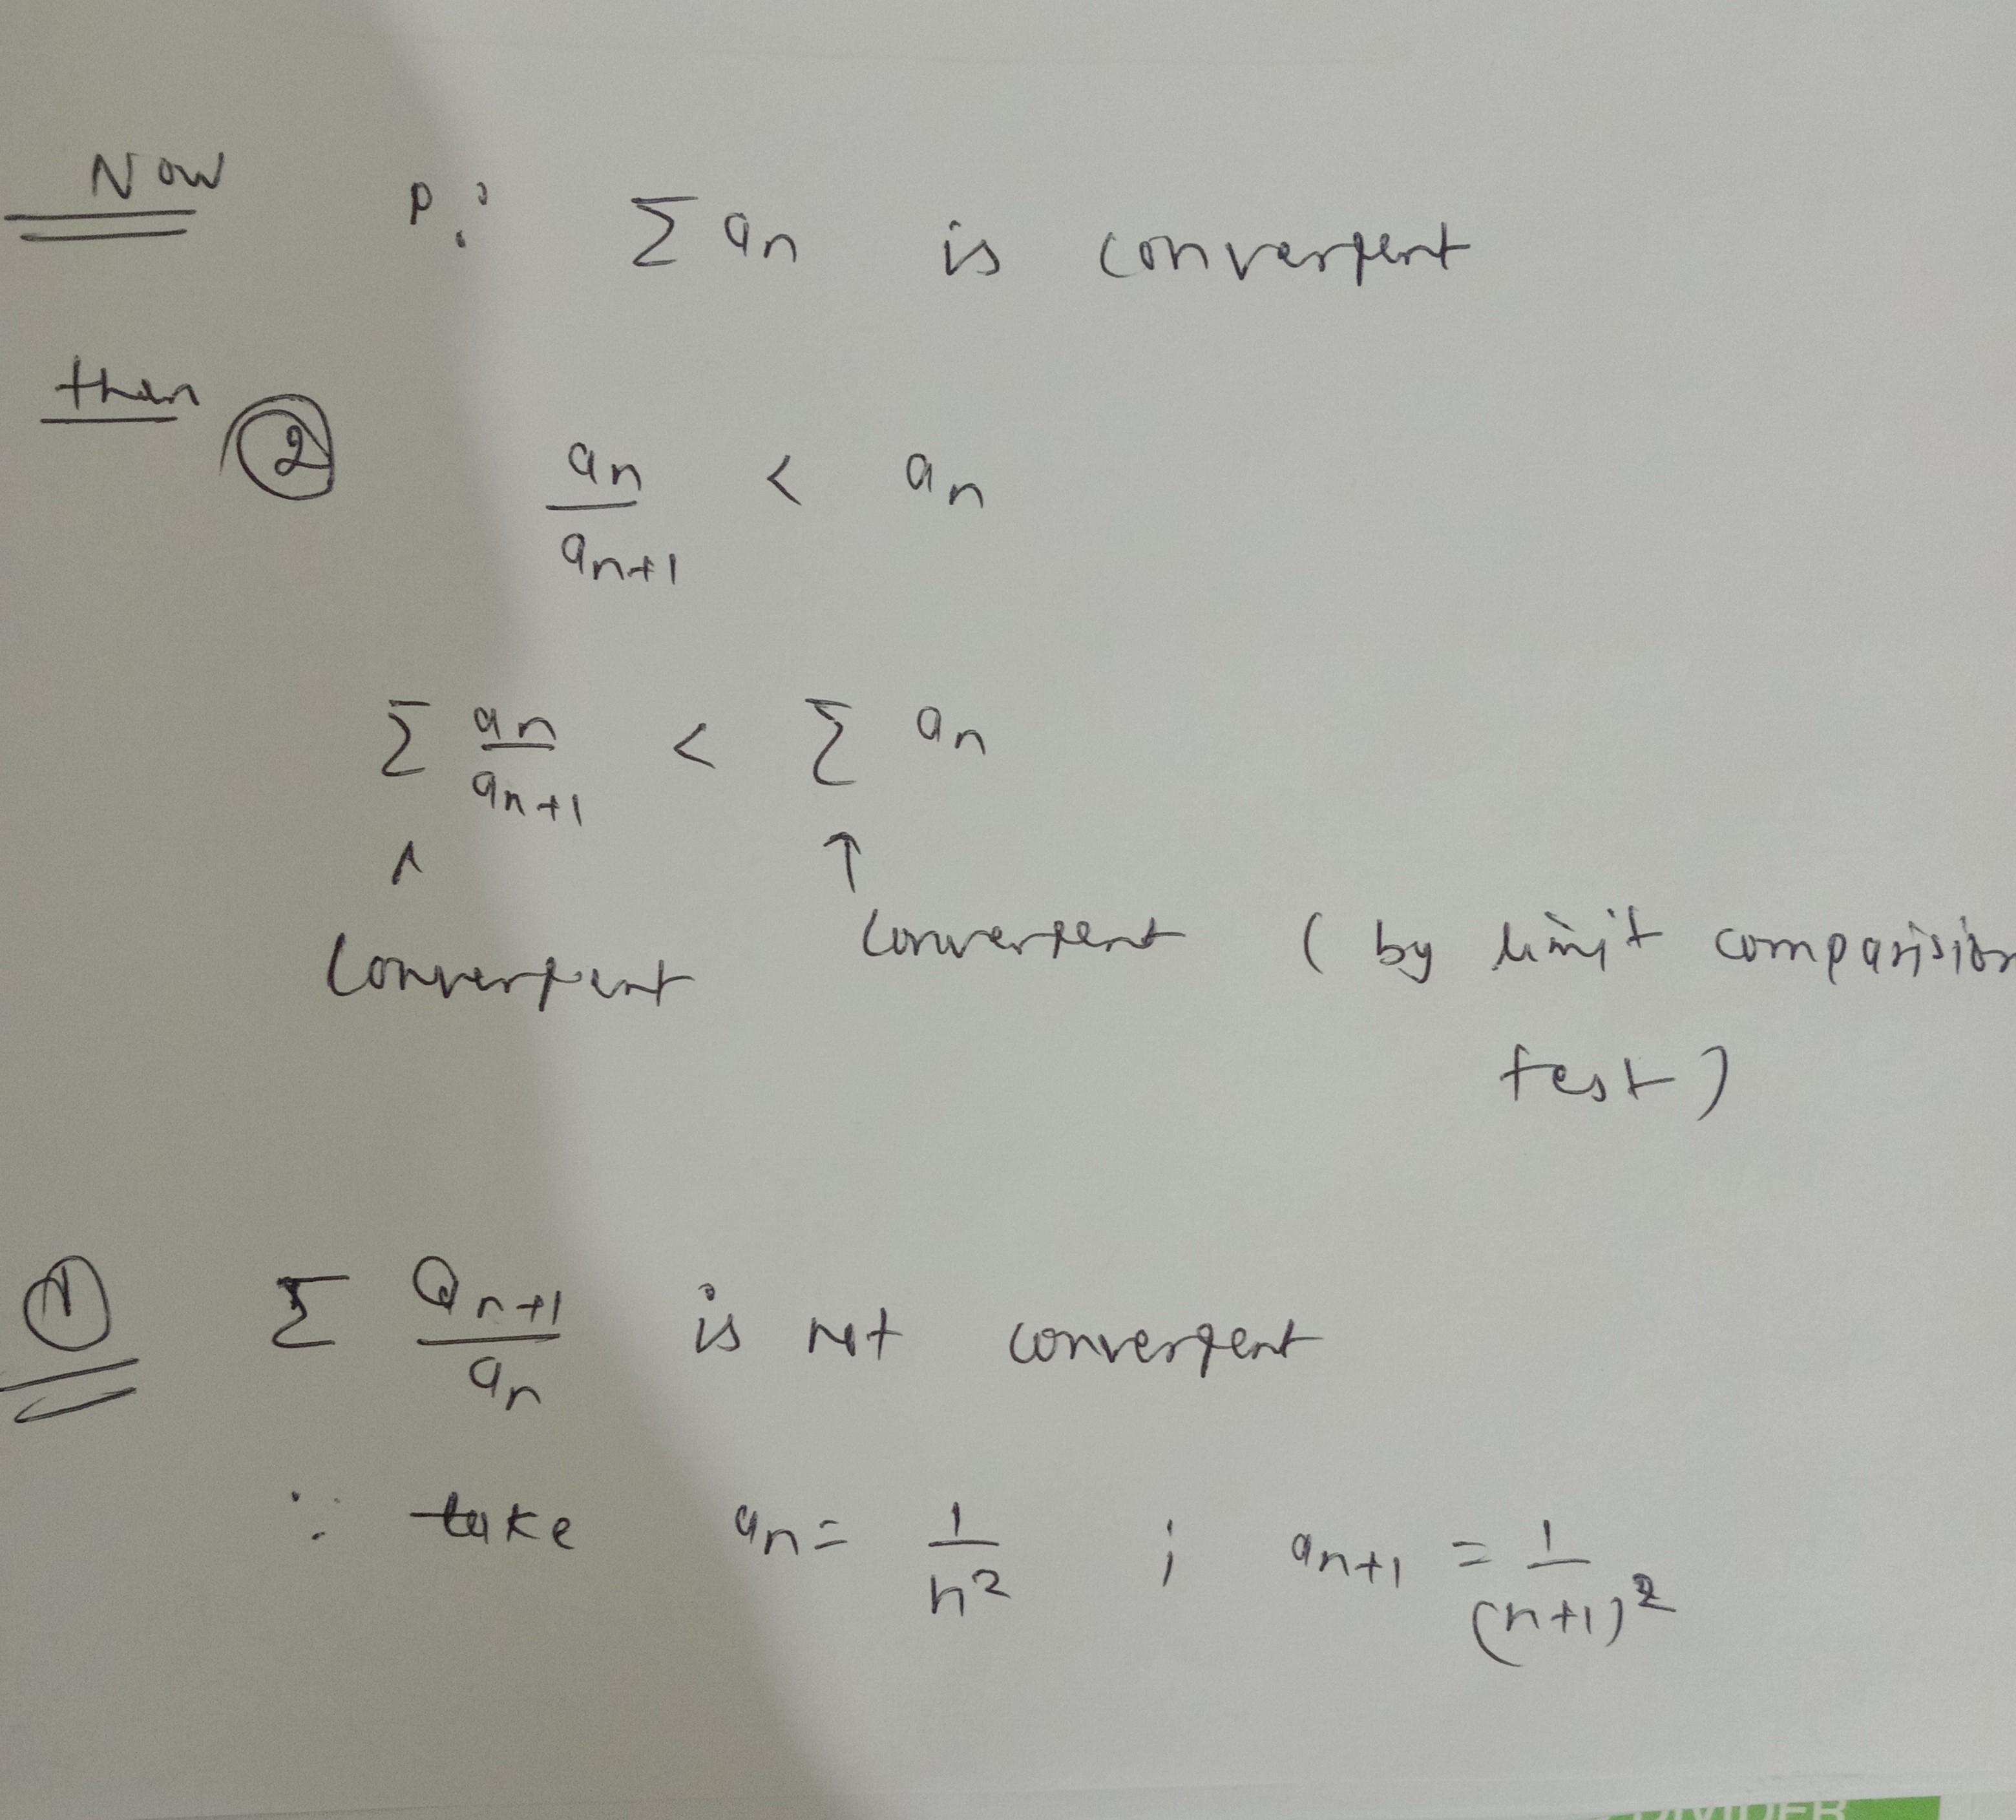 Now P: Σ an is convergent
then ② an/an+1 < an
Σ an/an+1 < Σ an
↑ ↑
convergent convergent (by limit comparision
test)
① Σ an+1/an is not convergent
∵ take an = 1/n² ; an+1 = 1/(n+1)²
DIVIDER